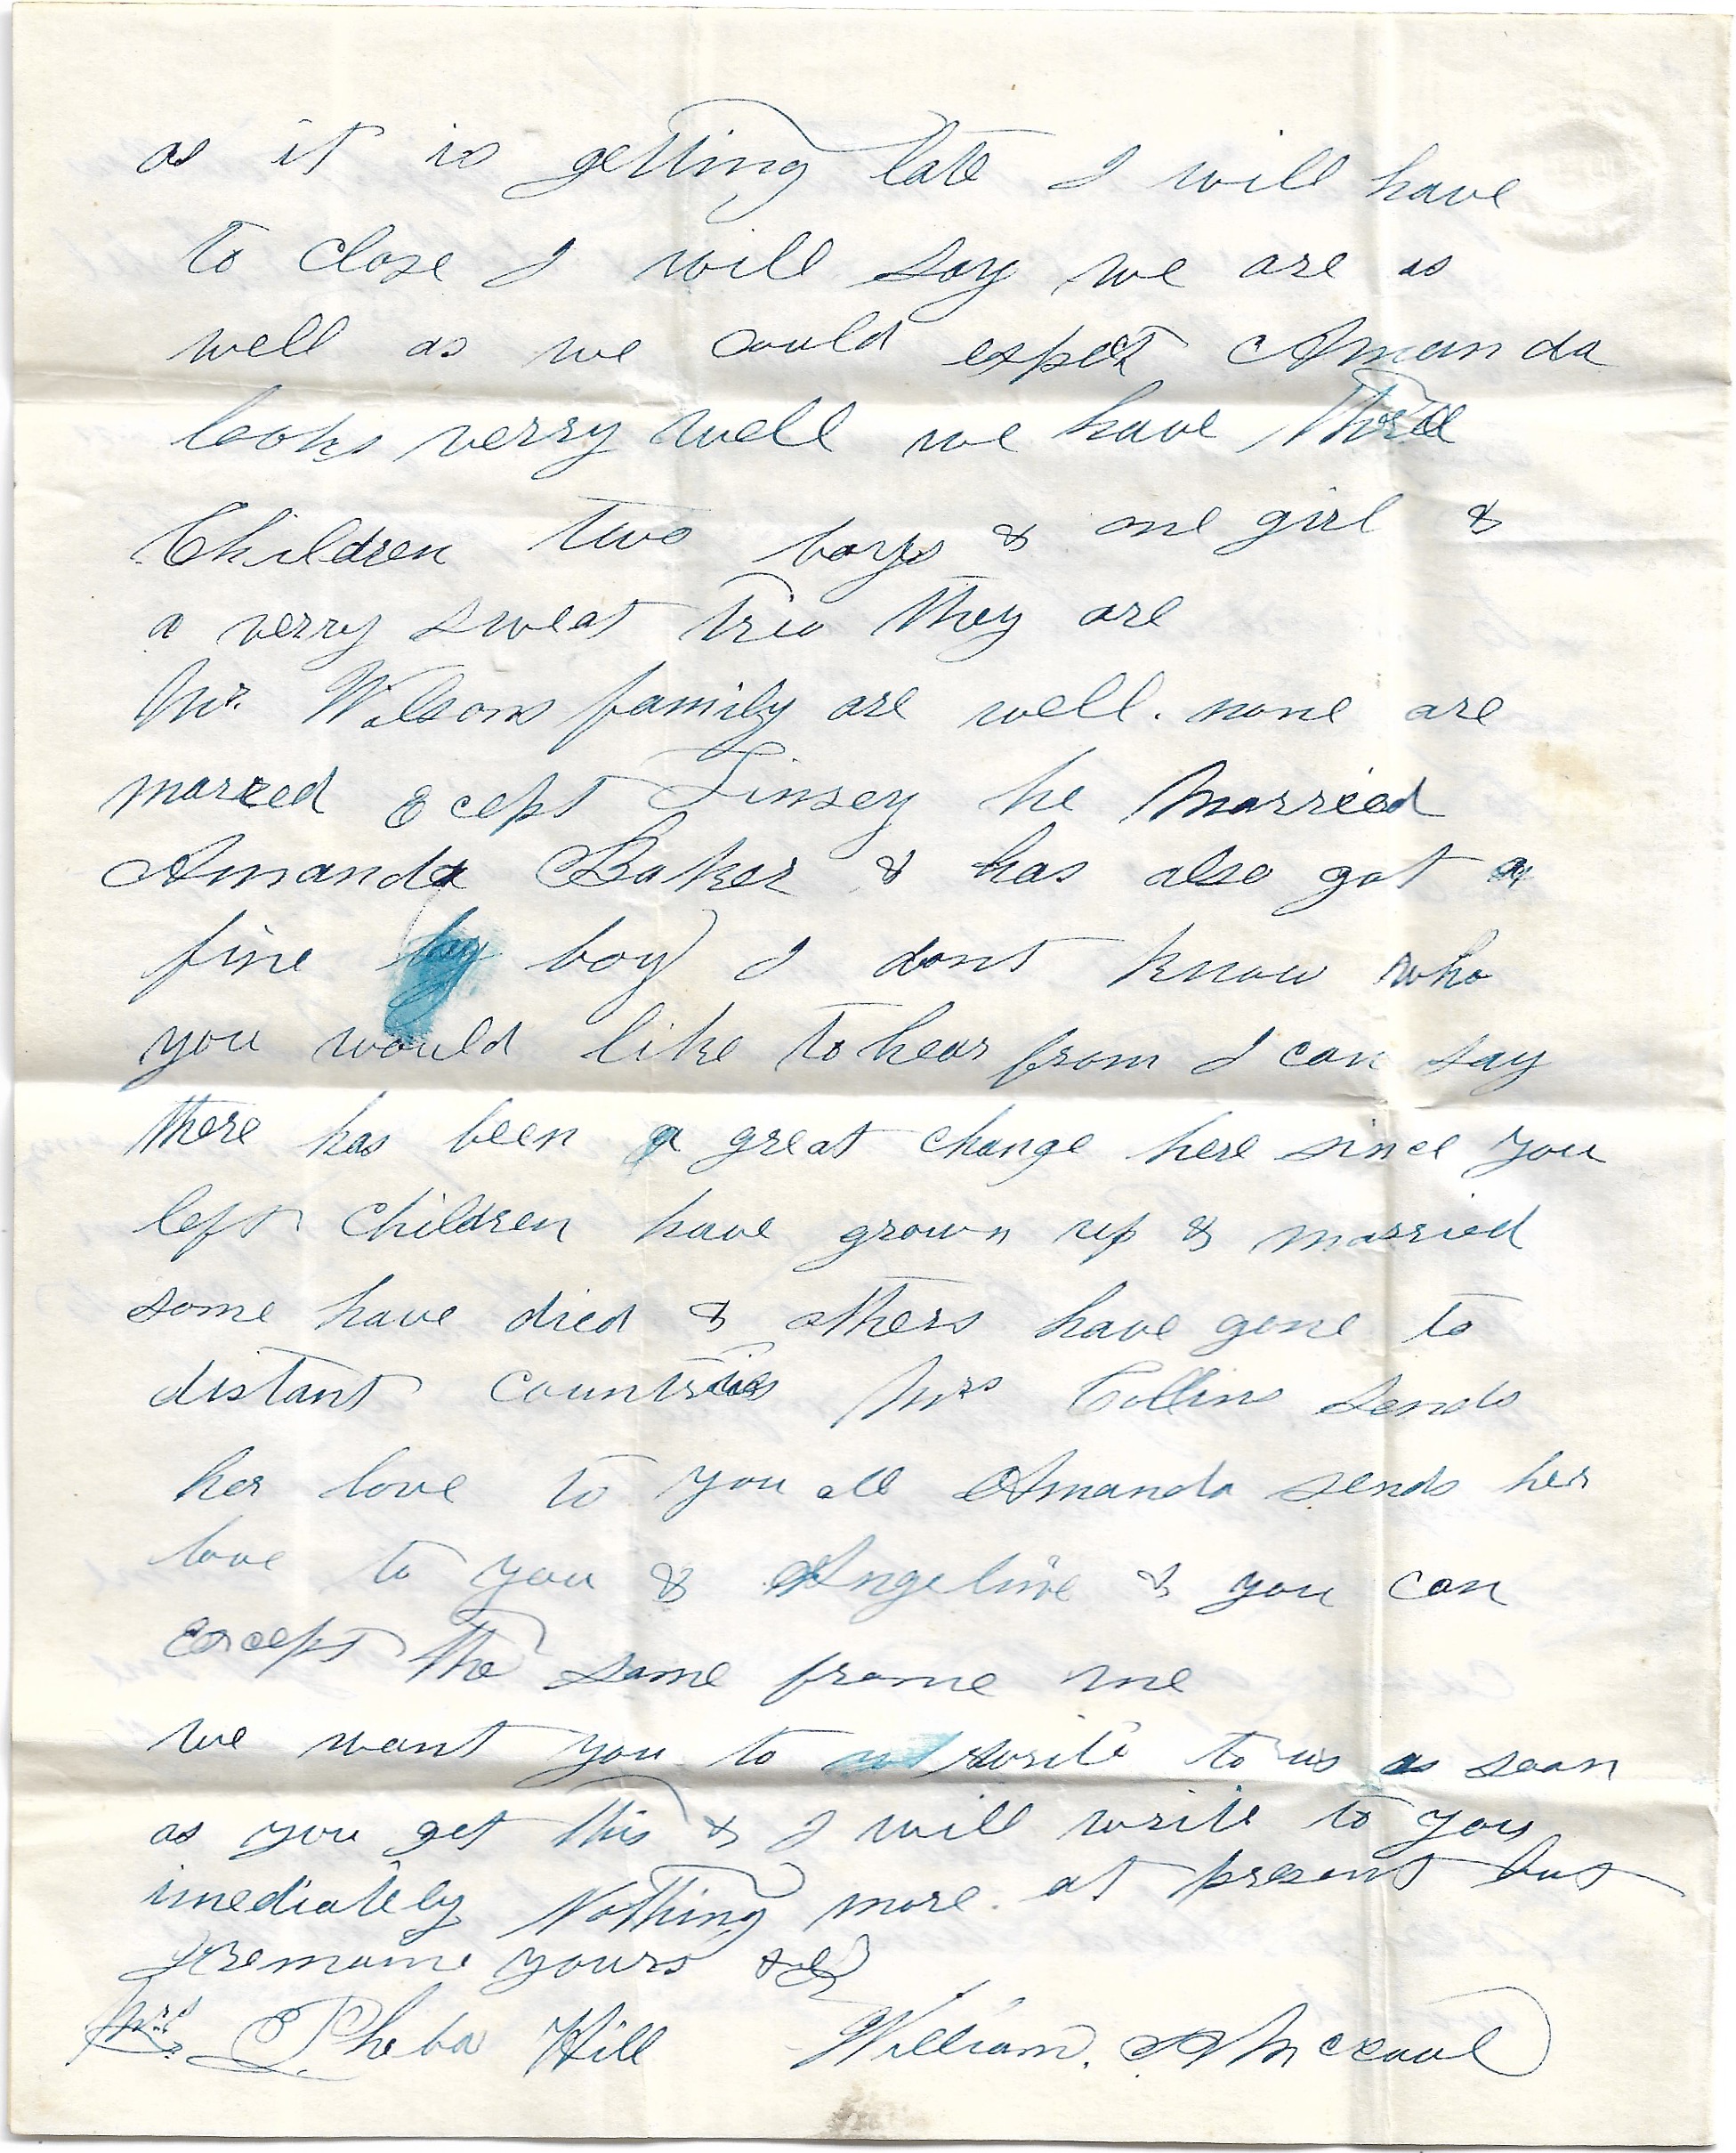 as it is getting late I will have
to close I will say we are as
well as we could expect Amanda
looks verry well we have three
Children two boys & one girl &
a verry sweat trio they are
Mr. Wilsons family are well. none are
marred Ecept Linsey he Married
Amanda Baker & has also got a
fine boy I dont know who
you would like to hear from I can say
there has been a great change here since you
left children have grown up & married
some have died & others have gone to
distant countries Mrs Collins sends
her love to you all Amanda sends her
love to you & Angeline & you can
Except the same frome me
we want you to write to us as soon
as you get this & I will write to you
imediately Nothing more. at present but
I remaine yours &c
Mrs Pheba Hill William. A